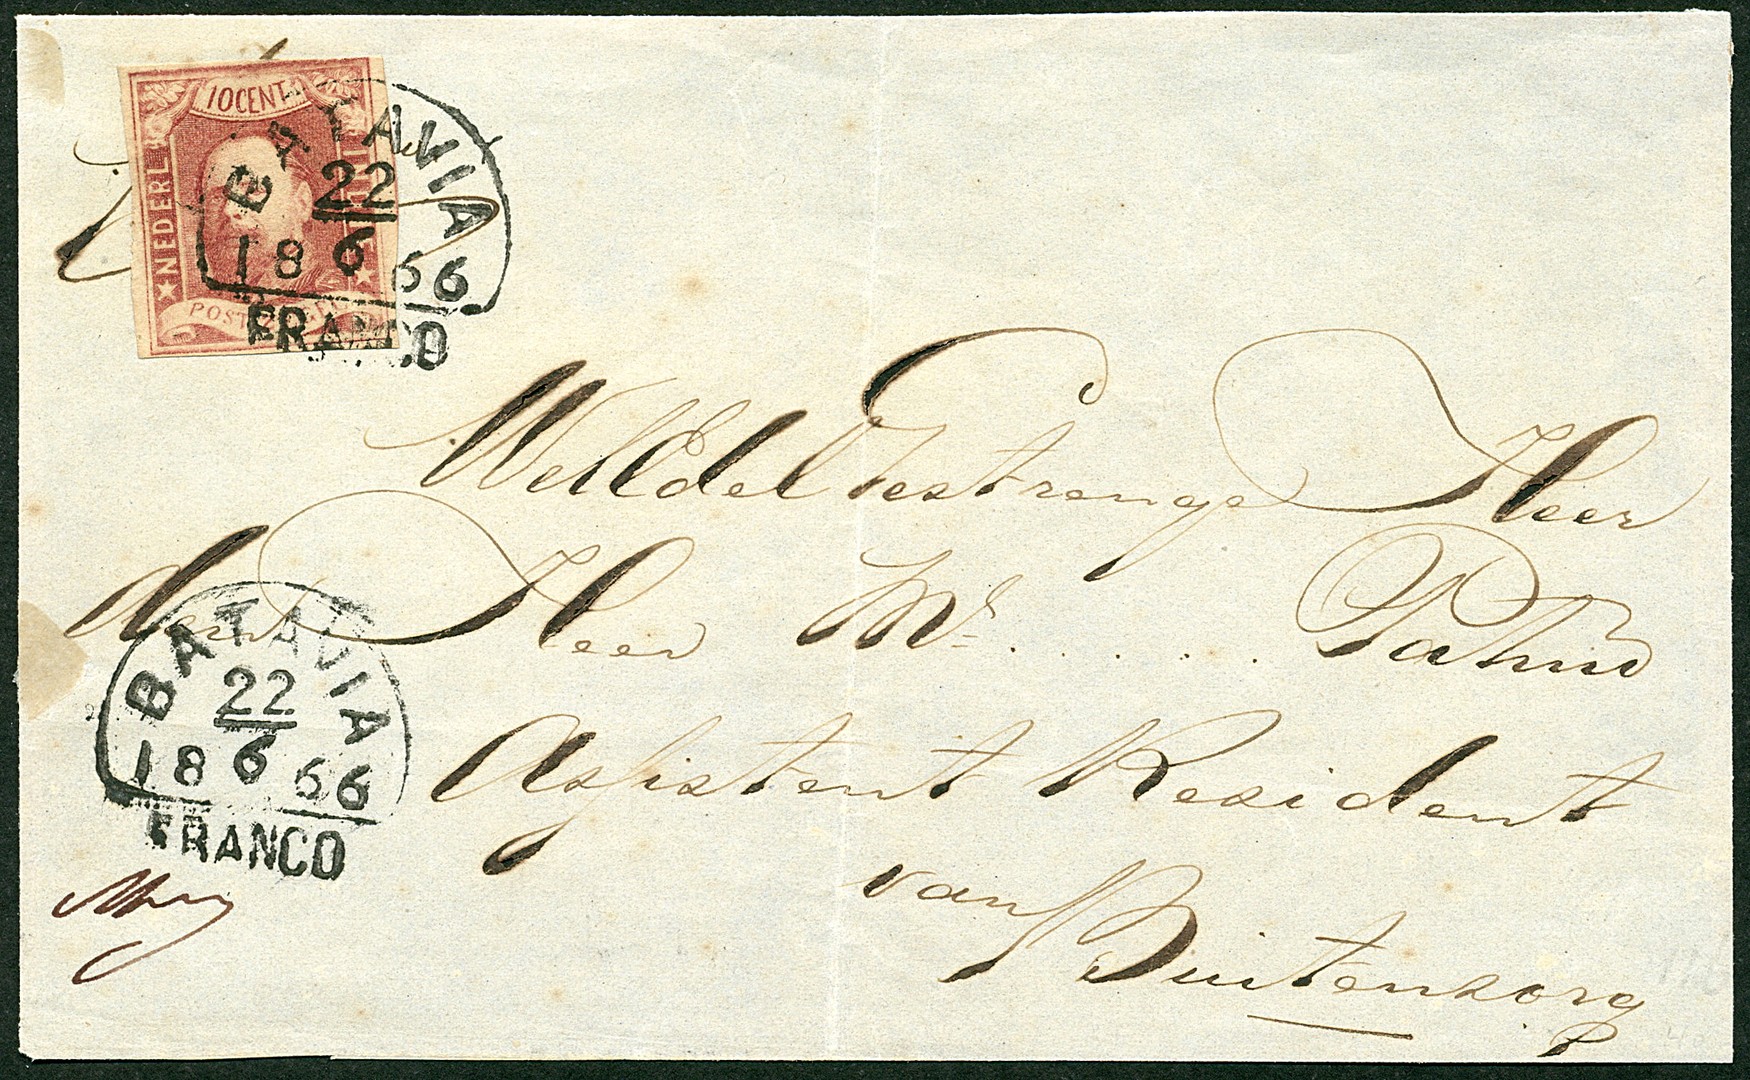 10 CENT
NEDERL INDIE
POSTZEGEL
BATAVIA
22
6
1866
FRANCO
WelEdel Gestrenge Heer
den Heer Mr. . . . . . Pahud
Assistent Resident
van Buitenzorg
BATAVIA
22
6
1866
FRANCO